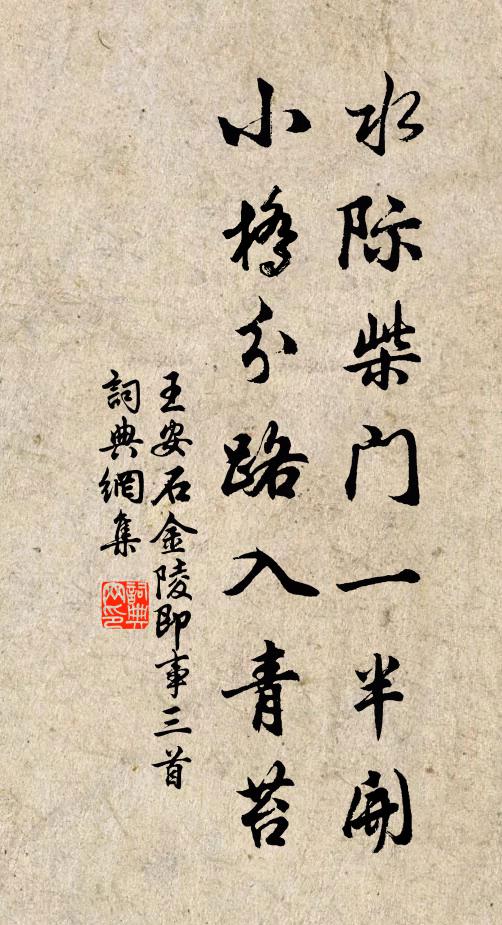 水际柴門一半開
小橋分路入青苔
王安石金陵即事三首
詞典網集
詞典
网印